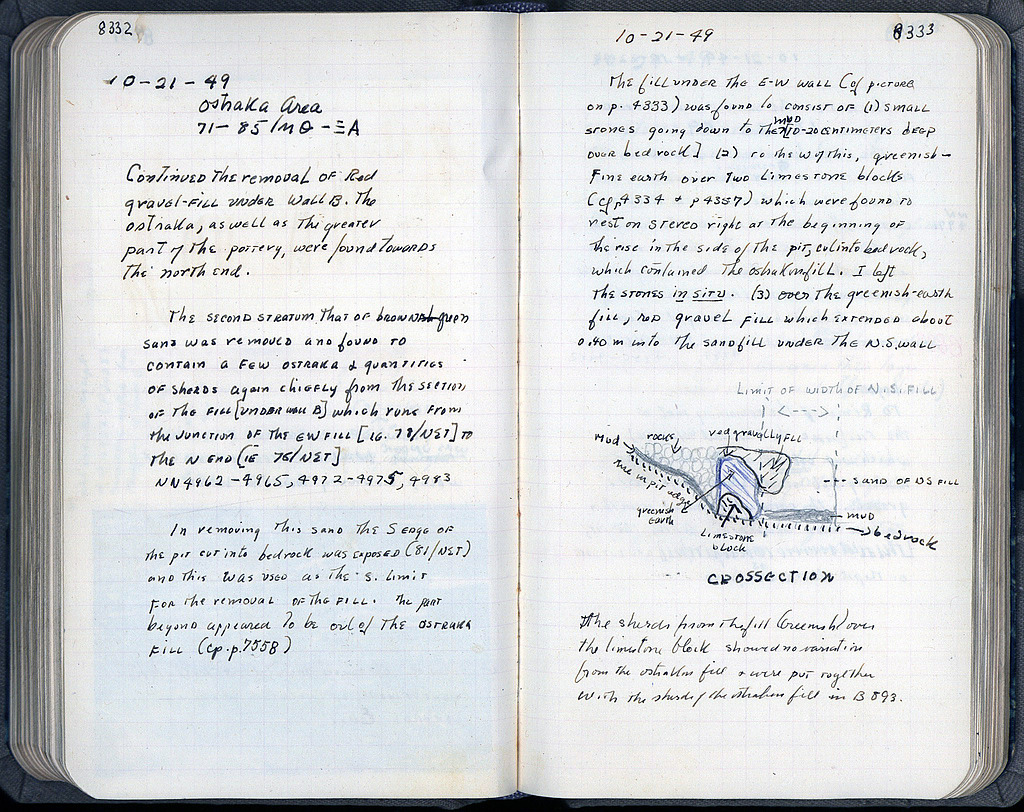 8332
10-21-49
Ostraka Area
71-85/ΜΘ-ΞΑ
Continued the removal of Red
gravel-fill under Wall B. The
ostraka, as well as the greater
part of the pottery, were found towards
the north end.
The second stratum, that of brown
sand was removed and found to
contain a few ostraka & quantities
of sherds again chiefly from the section
of the fill [under wall B] which runs from
the junction of the EW fill [ie. 78/ΝΣΤ] to
the N end (ie 76/ΝΣΤ]
NN4962-4965, 4972-4975, 4983
In removing this sand the S edge of
the pit cut into bedrock was exposed (81/ΝΣΤ)
and this was used as the S. limit
for the removal of the fill. The part
beyond appeared to be out of the ostraka
fill (cp. p. 7558)
10-21-49
8333
The fill under the E-W wall (cf picture
on p. 4333) was found to consist of (1) small
stones going down to the mud [10-20 centimeters deep
over bedrock] (2) to the W of this, greenish-
fine earth over two limestone blocks
(cf p 4334 + p 4357) which were found to
rest on stereo right at the beginning of
the rise in the side of the pit, cut into bedrock,
which contained the ostrakon fill. I left
the stones in situ. (3) over the greenish-earth
fill, red gravel fill which extended about
0.40 m into the sand fill under the N.S. wall
Limit of width of N.S. fill
Mud
rocks
red gravelly fill
rise in pit edge
sand of NS fill
greenish
earth
mud
Limestone
block
bedrock
CROSSECTION
The sherds from the fill (Greenish) over
the limestone block showed no variation
from the ostrakon fill & were put together
with the sherds of the ostrakon fill in B 893.